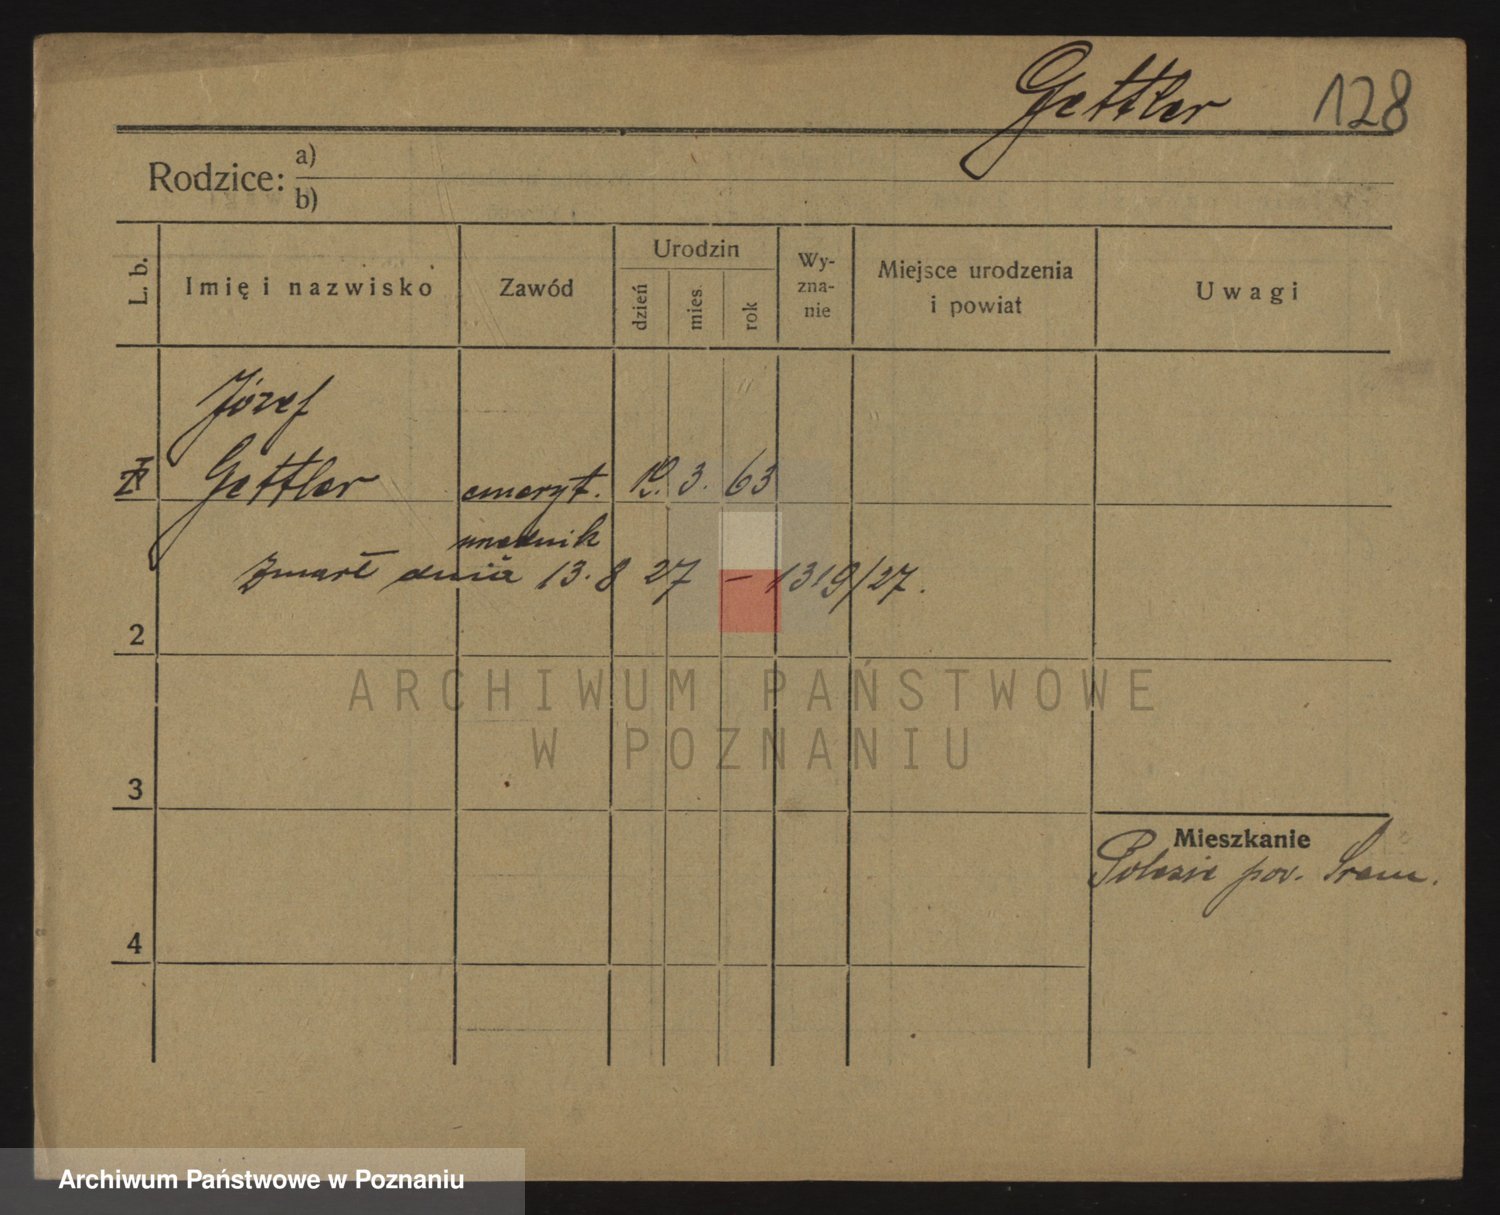 Gettler 128
Rodzice: a)
b)
L. b. Imię i nazwisko Zawód Urodzin dzień mies. rok Wy-zna-nie Miejsce urodzenia i powiat Uwagi
Józef
Gettler emeryt. 3. 63
urzędnik
Zmarł dnia 13.8 27 – 1319/27.
2
ARCHIWUM PAŃSTWOWE
W POZNANIU
3
Mieszkanie
Polesie pow. Śrem.
4
Archiwum Państwowe w Poznaniu